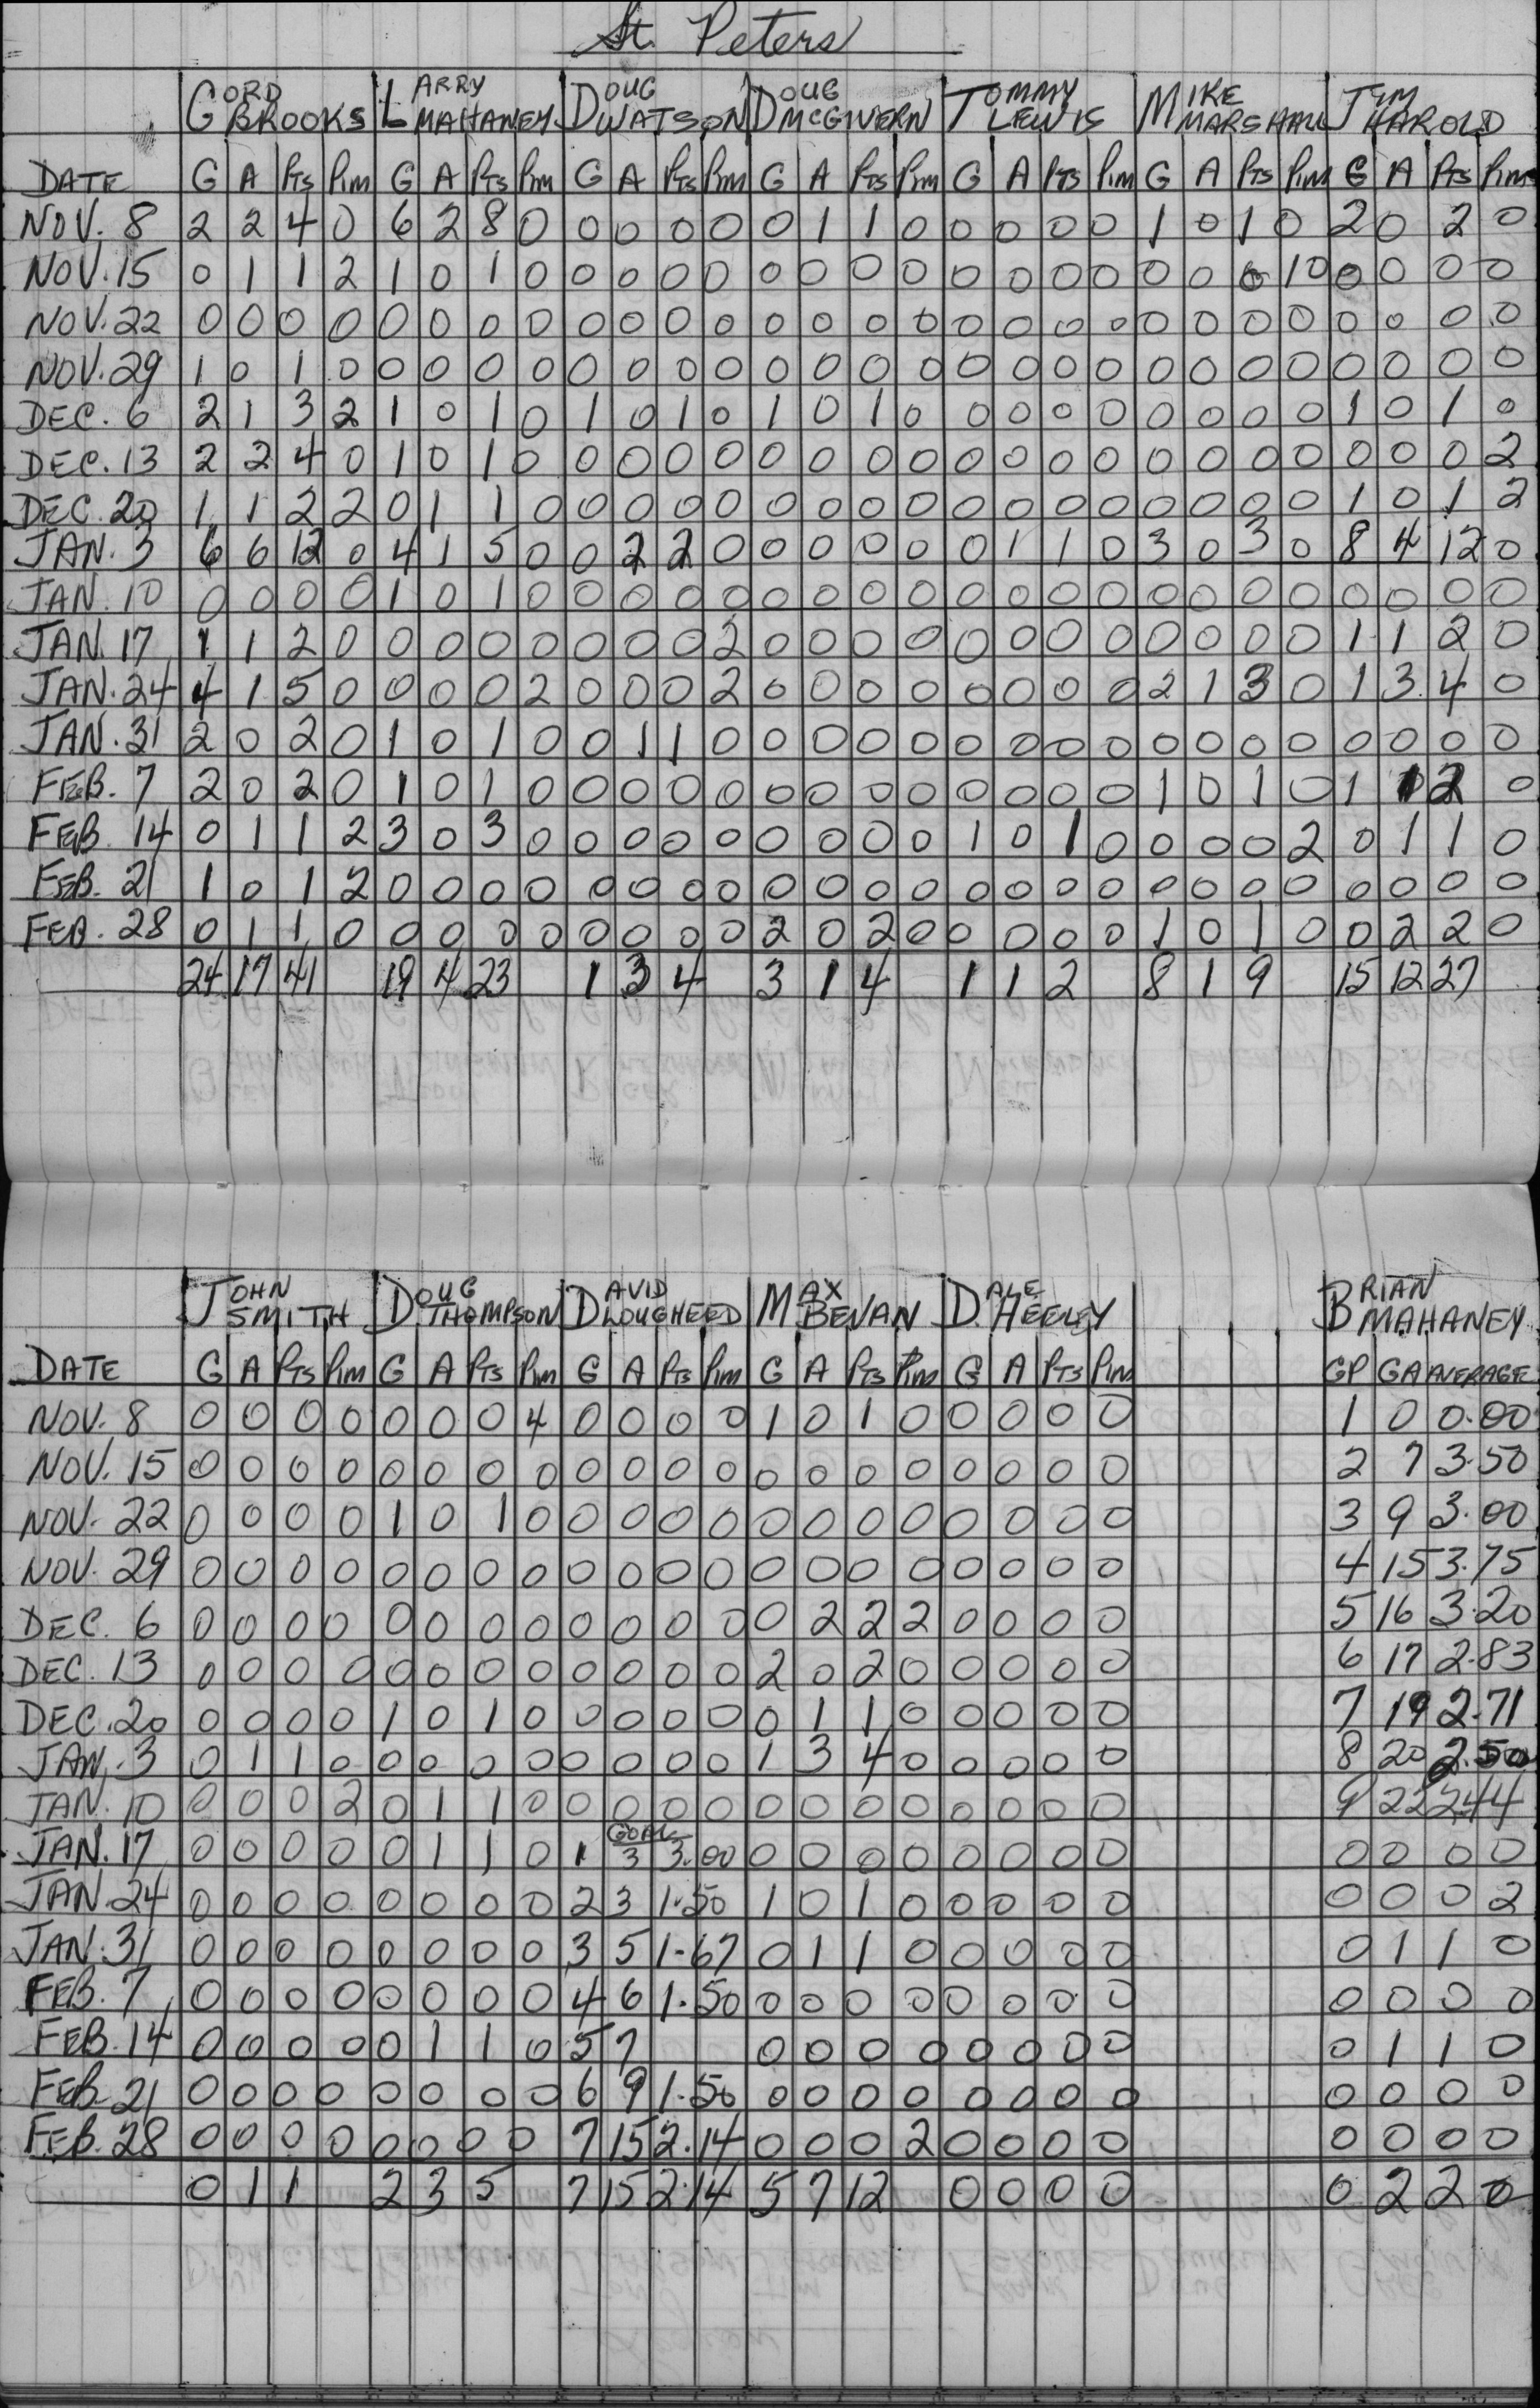 St. Peters
GORD BROOKS LARRY MAHANEY DOUG WATSON DOUG MCGIVERN TOMMY LEWIS MIKE MARSHALL JIM HAROLD
DATE G A PTS PIM G A PTS PIM G A PTS PIM G A PTS PIM G A PTS PIM G A PTS PIM G A PTS PIM
NOV. 8 2 2 4 0 6 2 8 0 0 0 0 0 0 1 1 0 0 0 0 0 1 0 1 0 2 0 2 0
NOV. 15 0 1 1 2 1 0 1 0 0 0 0 0 0 0 0 0 0 0 0 0 0 0 0 10 0 0 0 0
NOV. 22 0 0 0 0 0 0 0 0 0 0 0 0 0 0 0 0 0 0 0 0 0 0 0 0 0 0 0 0
NOV. 29 1 0 1 0 0 0 0 0 0 0 0 0 0 0 0 0 0 0 0 0 0 0 0 0 0 0 0 0
DEC. 6 2 1 3 2 1 0 1 0 1 0 1 0 1 0 1 0 0 0 0 0 0 0 0 0 1 0 1 0
DEC. 13 2 2 4 0 1 0 1 0 0 0 0 0 0 0 0 0 0 0 0 0 0 0 0 0 0 0 0 2
DEC. 20 1 1 2 2 0 1 1 0 0 0 0 0 0 0 0 0 0 0 0 0 0 0 0 0 1 0 1 2
JAN. 3 6 6 12 0 4 1 5 0 0 2 2 0 0 0 0 0 0 1 1 0 3 0 3 0 8 4 12 0
JAN. 10 0 0 0 0 1 0 1 0 0 0 0 0 0 0 0 0 0 0 0 0 0 0 0 0 0 0 0 0
JAN. 17 1 1 2 0 0 0 0 0 0 0 0 2 0 0 0 0 0 0 0 0 0 0 0 0 1 1 2 0
JAN. 24 4 1 5 0 0 0 0 2 0 0 0 2 0 0 0 0 0 0 0 0 2 1 3 0 1 3 4 0
JAN. 31 2 0 2 0 1 0 1 0 0 1 1 0 0 0 0 0 0 0 0 0 0 0 0 0 0 0 0 0
FEB. 7 2 0 2 0 1 0 1 0 0 0 0 0 0 0 0 0 0 0 0 0 1 0 1 0 1 1 2 0
FEB. 14 0 1 1 2 3 0 3 0 0 0 0 0 0 0 0 0 1 0 1 0 0 0 0 2 0 1 1 0
FEB. 21 1 0 1 2 0 0 0 0 0 0 0 0 0 0 0 0 0 0 0 0 0 0 0 0 0 0 0 0
FEB. 28 0 1 1 0 0 0 0 0 0 0 0 0 2 0 2 0 0 0 0 0 1 0 1 0 0 2 2 0
24 17 41 19 4 23 1 3 4 3 1 4 1 1 2 8 1 9 15 12 27
JOHN SMITH DOUG THOMPSON DAVID LOUGHEED MAX BEVAN DALE HEELEY BRIAN MAHANEY
DATE G A PTS PIM G A PTS PIM G A PTS PIM G A PTS PIM G A PTS PIM GP GA AVERAGE
NOV. 8 0 0 0 0 0 0 0 4 0 0 0 0 1 0 1 0 0 0 0 0 1 0 0.00
NOV. 15 0 0 0 0 0 0 0 0 0 0 0 0 0 0 0 0 0 0 0 0 2 7 3.50
NOV. 22 0 0 0 0 1 0 1 0 0 0 0 0 0 0 0 0 0 0 0 0 3 9 3.00
NOV. 29 0 0 0 0 0 0 0 0 0 0 0 0 0 0 0 0 0 0 0 0 4 15 3.75
DEC. 6 0 0 0 0 0 0 0 0 0 0 0 0 0 2 2 2 0 0 0 0 5 16 3.20
DEC. 13 0 0 0 0 0 0 0 0 0 0 0 0 2 0 2 0 0 0 0 0 6 17 2.83
DEC. 20 0 0 0 0 1 0 1 0 0 0 0 0 0 1 1 0 0 0 0 0 7 19 2.71
JAN. 3 0 1 1 0 0 0 0 0 0 0 0 0 1 3 4 0 0 0 0 0 8 20 2.50
JAN. 10 0 0 0 2 0 1 1 0 0 0 0 0 0 0 0 0 0 0 0 0 9 22 2.44
JAN. 17 0 0 0 0 0 1 1 0 1 GOAL 3 3.00 0 0 0 0 0 0 0 0 0 0 0 0
JAN. 24 0 0 0 0 0 0 0 0 2 3 1.50 1 0 1 0 0 0 0 0 0 0 0 2
JAN. 31 0 0 0 0 0 0 0 0 3 5 1.67 0 1 1 0 0 0 0 0 0 1 1 0
FEB. 7 0 0 0 0 0 0 0 0 4 6 1.50 0 0 0 0 0 0 0 0 0 0 0 0
FEB. 14 0 0 0 0 0 1 1 0 5 7 0 0 0 0 0 0 0 0 0 1 1 0
FEB. 21 0 0 0 0 0 0 0 0 6 9 1.50 0 0 0 0 0 0 0 0 0 0 0 0
FEB. 28 0 0 0 0 0 0 0 0 7 15 2.14 0 0 0 2 0 0 0 0 0 0 0 0
0 1 1 2 3 5 7 15 2.14 5 7 12 0 0 0 0 0 2 2 0